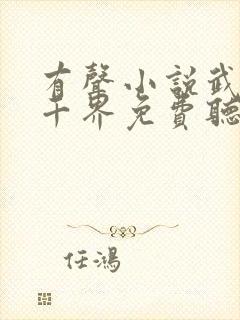 有聲小說武
十界免費聽
任鴻